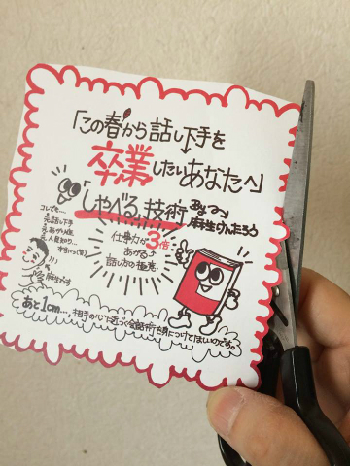 「この春から話し下手を
卒業したいあなたへ」
「しゃべる技術」
麻生けんたろう
仕事力が3倍
あがる
話し方の極意
コレでも…
元話し下手
元あがり症
元人見知り…
麻生けんたろう
あと1cm…相手の心に近づく会話術を身につけてほしいのです。